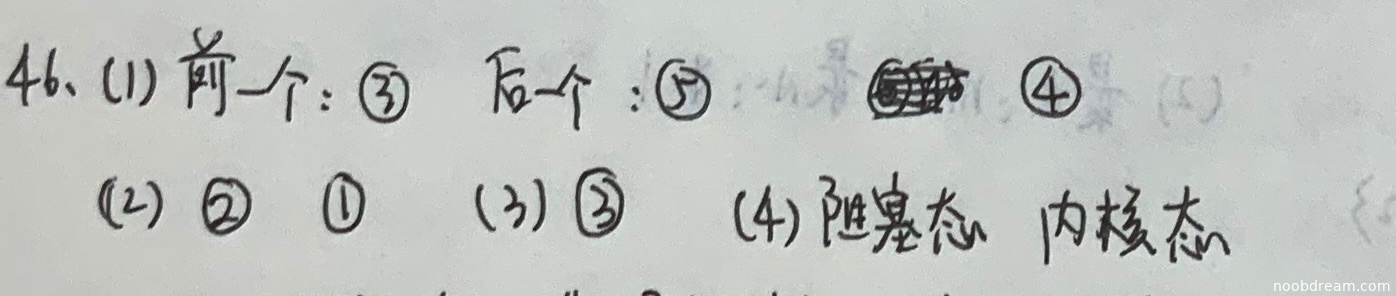 46、(1) 前一个：③ 后一个：⑤ ④
(2) ② ① (3) ③ (4) 阻塞态 内核态
noobdream.com